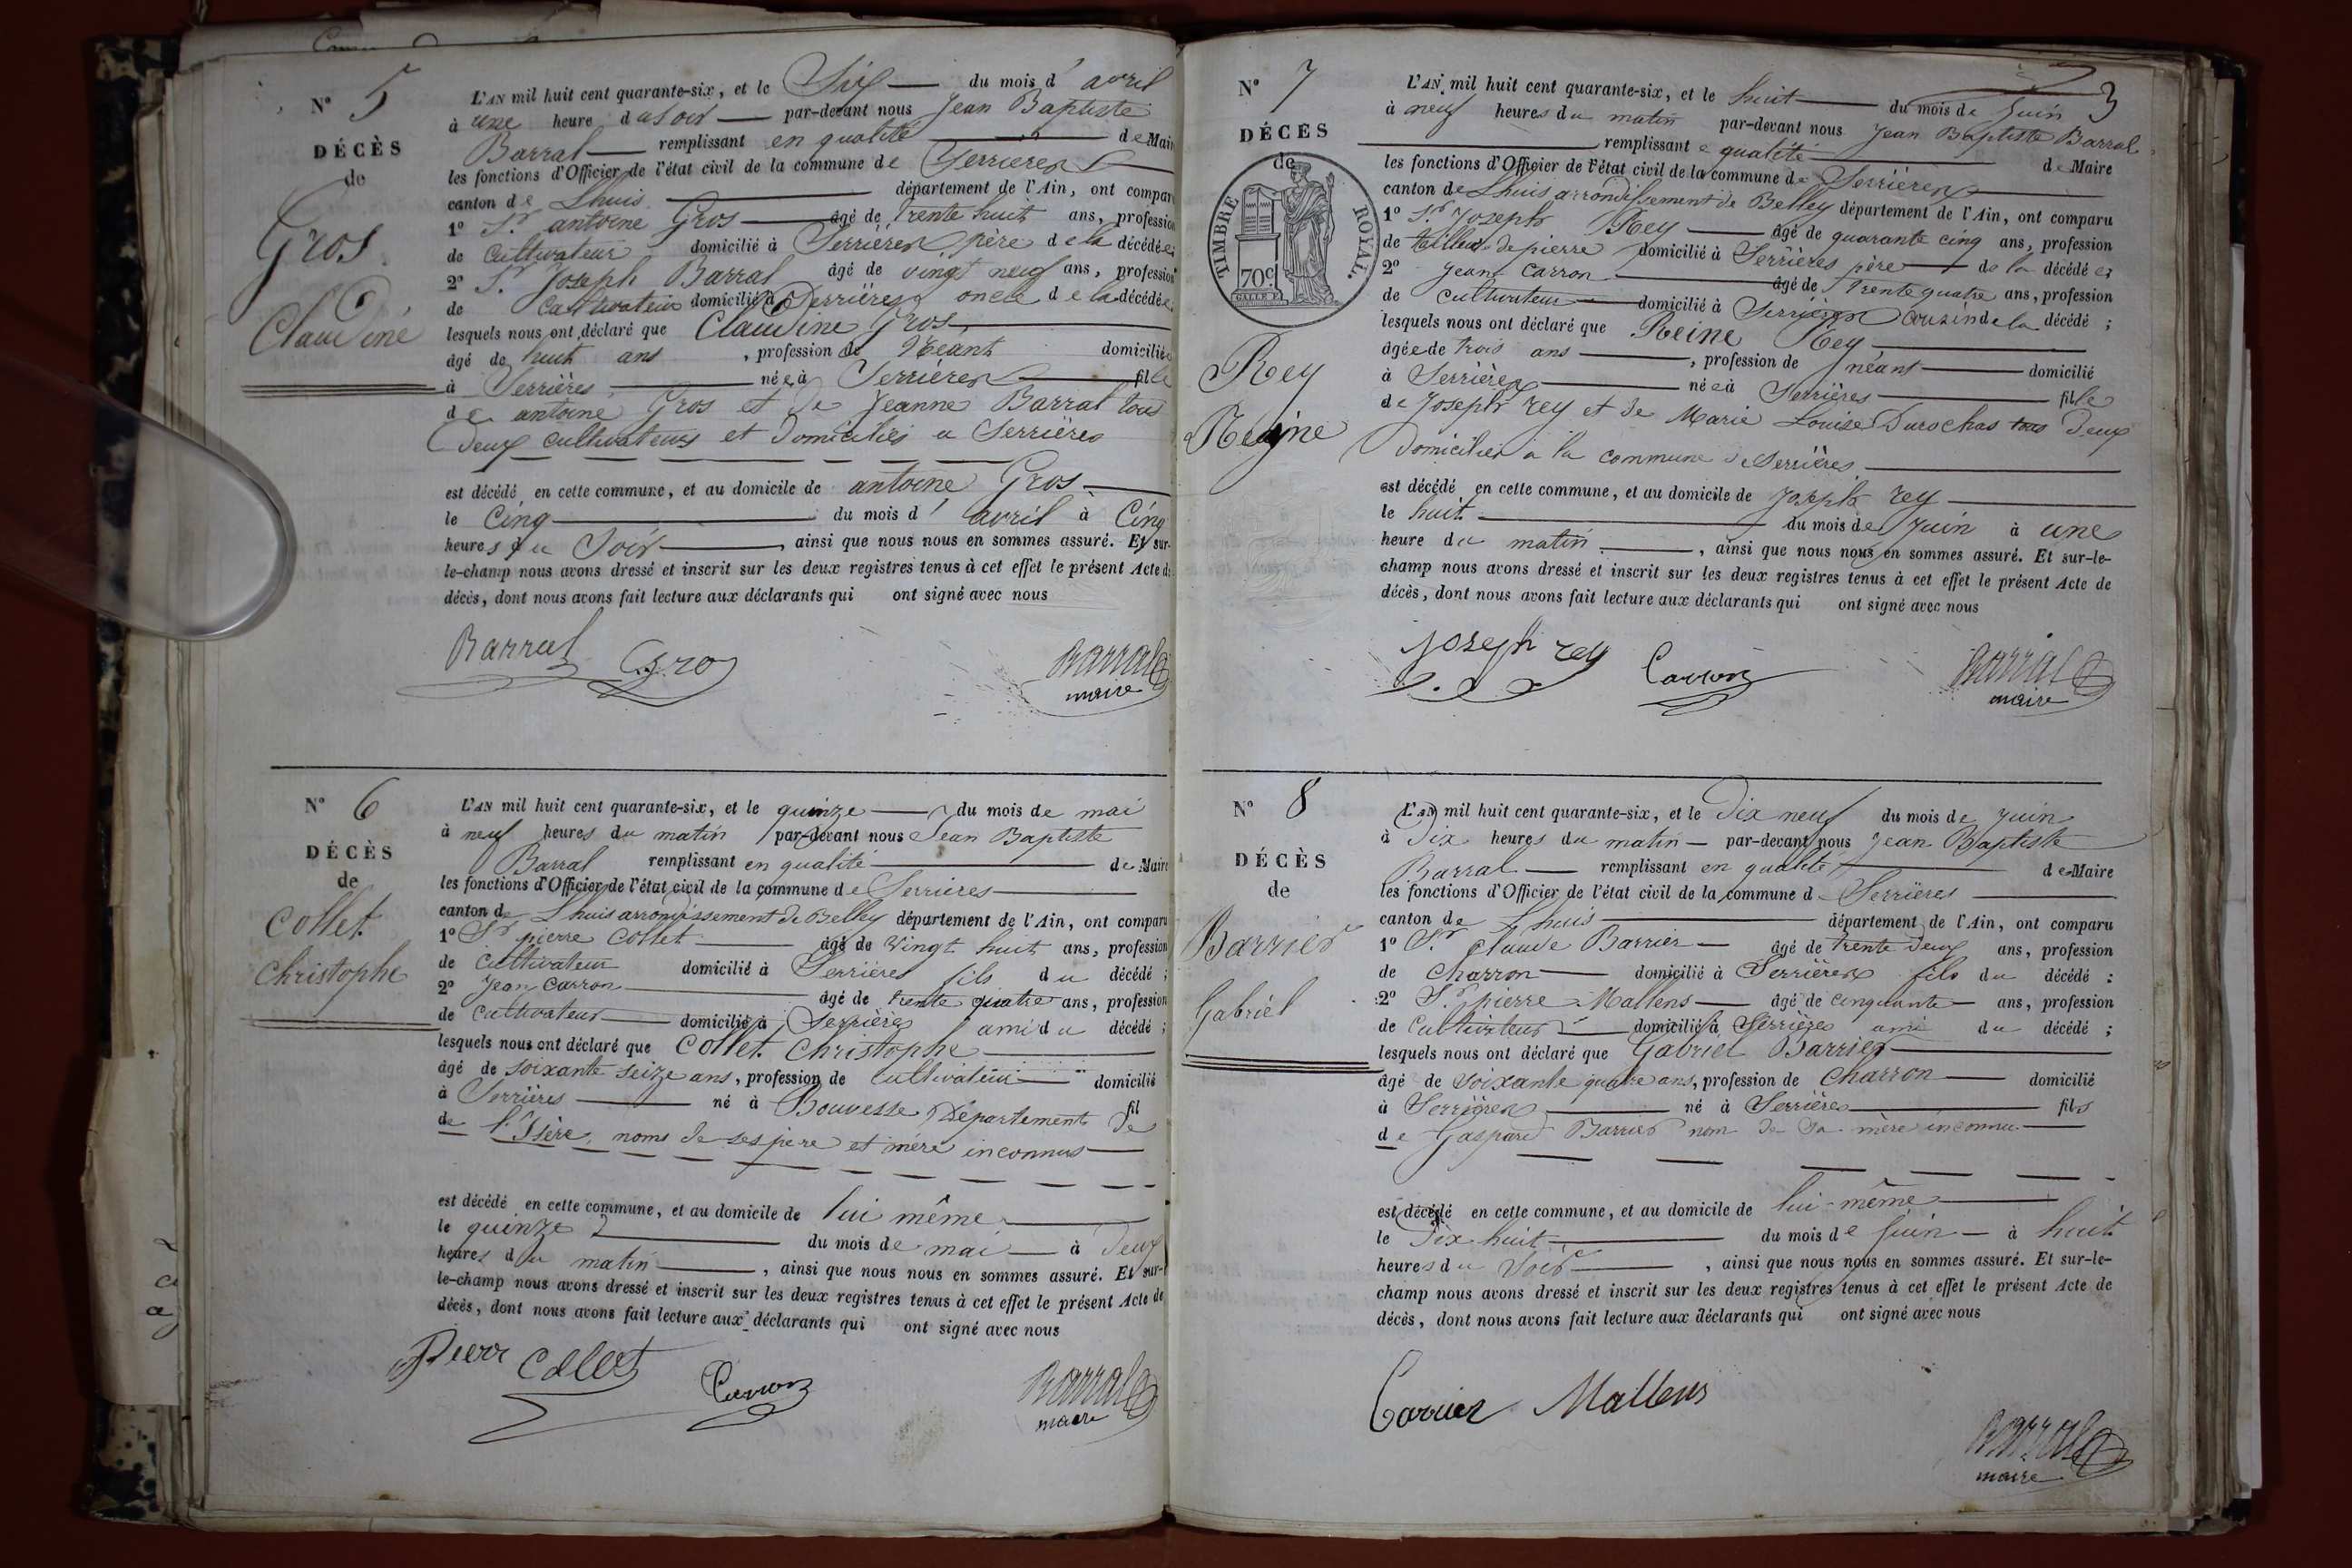 N° 5
DÉCÈS
de
Gros
Claudine
L'AN mil huit cent quarante-six, et le Six du mois d' avril
à une heure du soir par-devant nous Jean Baptiste
Barral remplissant en qualité de Mair
les fonctions d'Officier de l'état civil de la commune de Serrières
canton de Lhuis département de l'Ain, ont compar
1° Sr antoine Gros âgé de trente huit ans, profession
de cultivateur domicilié à Serrières père de la décédée;
2° Sr Joseph Barral âgé de vingt neuf ans, profession
de cultivateur domicilié à Serrières oncle de la décédée
lesquels nous ont déclaré que Claudine Gros
âgé de huit ans, profession de Néant domicilié
à Serrières née à Serrières fille
de antoine Gros et de Jeanne Barral tous
deux cultivateurs et domiciliés a Serrières
est décédé en cette commune, et au domicile de antoine Gros
le Cinq du mois d' avril à Cinq
heures du Soir, ainsi que nous nous en sommes assuré. Et sur-
le-champ nous avons dressé et inscrit sur les deux registres tenus à cet effet le présent Acte d
décès, dont nous avons fait lecture aux déclarants qui ont signé avec nous
Barral Gros Barral
maire
N° 6
DÉCÈS
de
Collet
Christophe
L'AN mil huit cent quarante-six, et le quinze du mois de mai
à neuf heures du matin par-devant nous Jean Baptiste
Barral remplissant en qualité de Maire
les fonctions d'Officier de l'état civil de la commune de Serrières
canton de Lhuis arrondissement de Belley département de l'Ain, ont comparu
1° Sr pierre Collet âgé de vingt huit ans, profession
de cultivateur domicilié à Serrières fils du décédé;
2° Jean Carron âgé de trente quatre ans, profession
de cultivateur domicilié à Serrières ami du décédé;
lesquels nous ont déclaré que Collet Christophe
âgé de soixante seize ans, profession de cultivateur domicilié
à Serrières né à Bouvesse Département de fil
de l'Isère, noms de ses père et mère inconnus
est décédé en cette commune, et au domicile de lui même
le quinze du mois de mai à deux
heures du matin, ainsi que nous nous en sommes assuré. Et sur-
le-champ nous avons dressé et inscrit sur les deux registres tenus à cet effet le présent Acte de
décès, dont nous avons fait lecture aux déclarants qui ont signé avec nous
Pierr Collet Carron Barral
maire
3
N° 7
DÉCÈS
de
TIMBRE ROYAL.
70c
Rey
Reine
L'AN mil huit cent quarante-six, et le huit du mois de Juin
à neuf heures du matin par-devant nous Jean Baptiste Barral
remplissant e qualité de Maire
les fonctions d'Officier de l'état civil de la commune de Serrières
canton de Lhuis arrondissement de Belley département de l'Ain, ont comparu
1° Sr Joseph Rey âgé de quarante cinq ans, profession
de tailleur de pierre domicilié à Serrières père de la décédée;
2° Jean Carron âgé de trente quatre ans, profession
de cultivateur domicilié à Serrières cousin de la décédé;
lesquels nous ont déclaré que Reine Rey
âgée de trois ans, profession de néant domicilié
à Serrières née à Serrières fille
de Joseph rey et de Marie Louise Durochas tous deux
domiciliés à la commune de Serrières
est décédé en cette commune, et au domicile de Joseph rey
le huit du mois de Juin à une
heure du matin, ainsi que nous nous en sommes assuré. Et sur-le-
champ nous avons dressé et inscrit sur les deux registres tenus à cet effet le présent Acte de
décès, dont nous avons fait lecture aux déclarants qui ont signé avec nous
joseph rey Carron Barral
maire
N° 8
DÉCÈS
de
Barrier
Gabriel
L'AN mil huit cent quarante-six, et le Dix neuf du mois de Juin
à Dix heures du matin par-devant nous Jean Baptiste
Barral remplissant en qualité de Maire
les fonctions d'Officier de l'état civil de la commune d Serrières
canton de Lhuis département de l'Ain, ont comparu
1° Sr Claude Barrier âgé de trente deux ans, profession
de Charron domicilié à Serrières fils du décédé:
2° Sr pierre Mallens âgé de cinquante ans, profession
de Cultivateur domicilié à Serrières ami du décédé;
lesquels nous ont déclaré que Gabriel Barrier
âgé de soixante quatre ans, profession de Charron domicilié
à Serrières né à Serrières fils
de Gaspard Barrier nom de sa mère inconnu
est décédé en cette commune, et au domicile de lui-même
le Dix huit du mois de Juin à huit
heures du Soir, ainsi que nous nous en sommes assuré. Et sur-le-
champ nous avons dressé et inscrit sur les deux registres tenus à cet effet le présent Acte de
décès, dont nous avons fait lecture aux déclarants qui ont signé avec nous
Barrier Mallens
Barral
maire